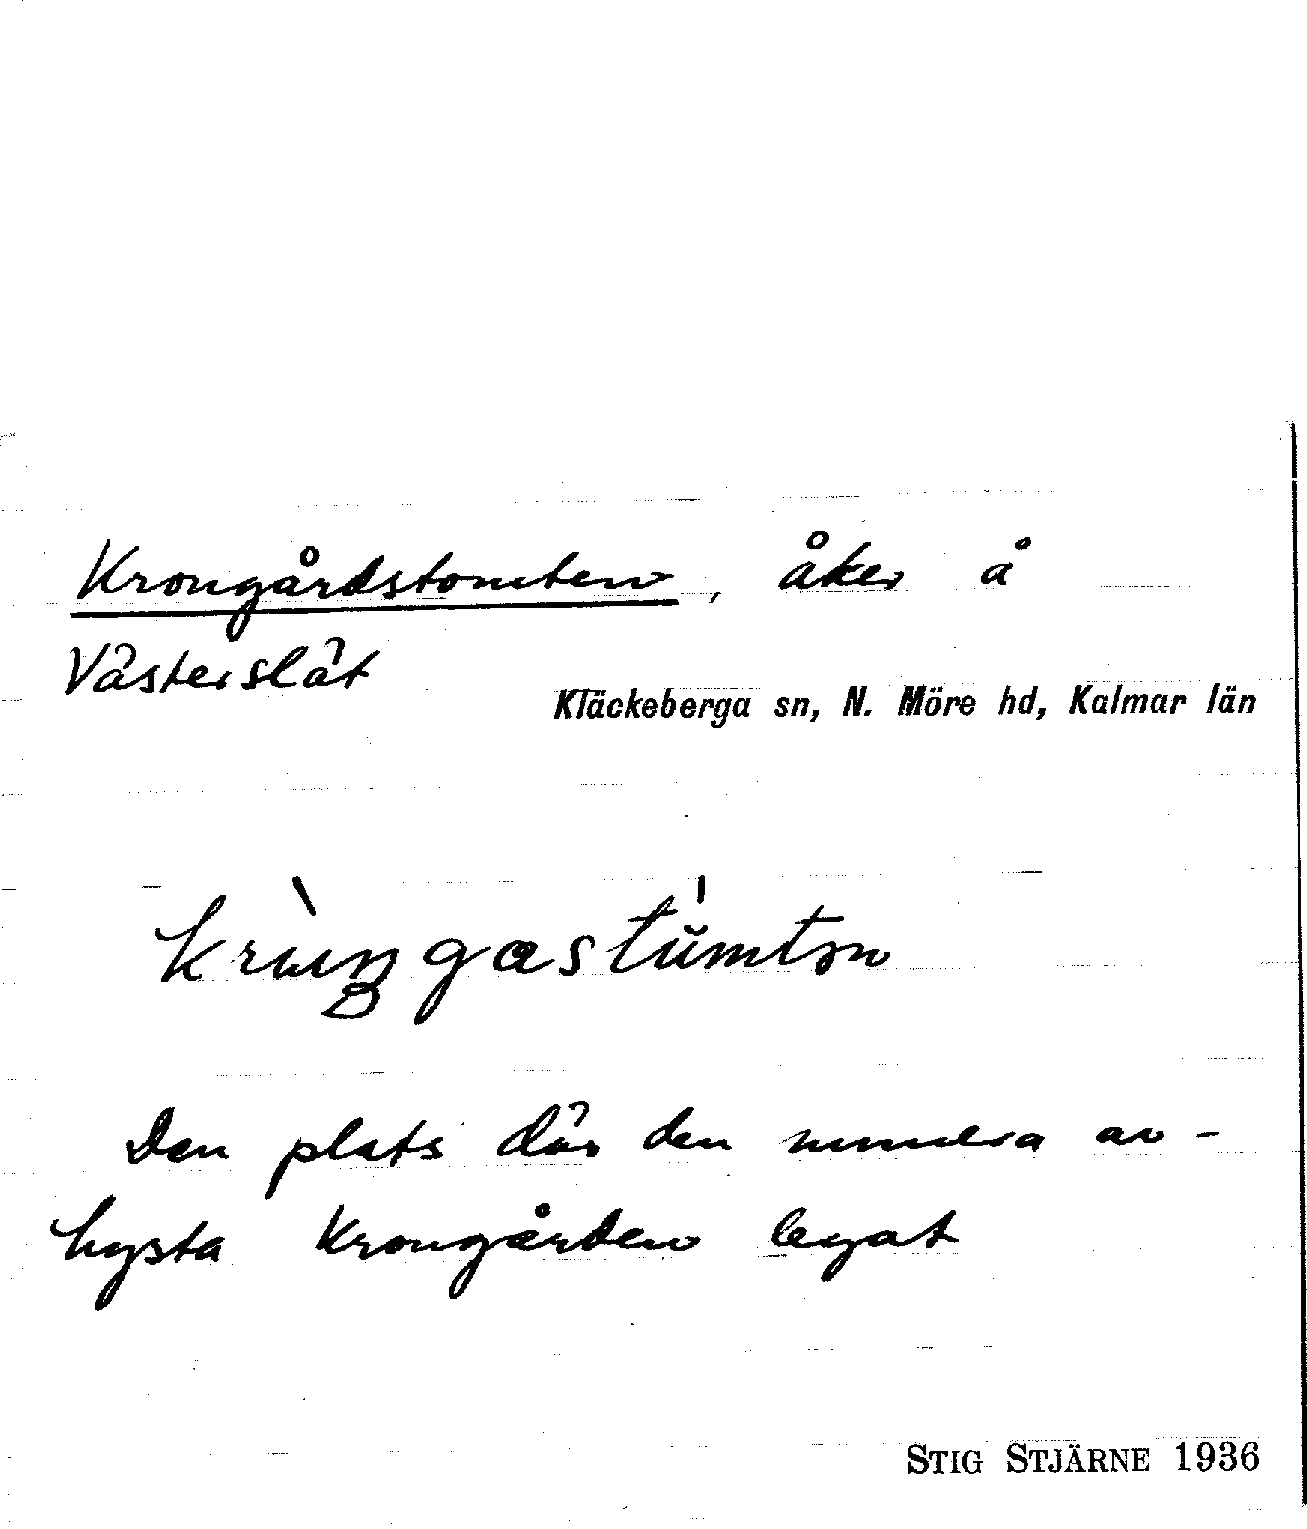 Krongårdstomten, åker å
Västerslät
Kläckeberga sn, N. Möre hd, Kalmar län
Den plats där den numera av-
hysta Krongården legat
STIG STJÄRNE 1936